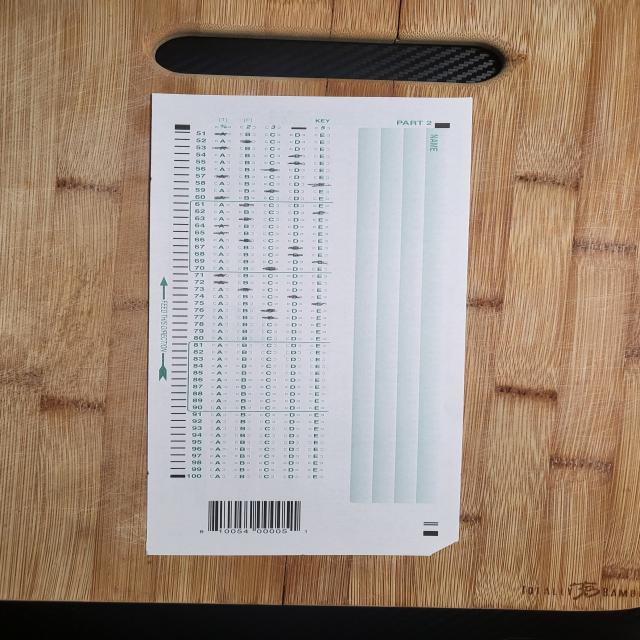 PART 2
NAME
(T) (F) KEY
51 A B C D E
52 A B C D E
53 A B C D E
54 A B C D E
55 A B C D E
56 A B C D E
57 A B C D E
58 A B C D E
59 A B C D E
60 A B C D E
61 A B C D E
62 A B C D E
63 A B C D E
64 A B C D E
65 A B C D E
66 A B C D E
67 A B C D E
68 A B C D E
69 A B C D E
70 A B C D E
71 A B C D E
72 A B C D E
73 A B C D E
74 A B C D E
75 A B C D E
76 A B C D E
77 A B C D E
78 A B C D E
79 A B C D E
80 A B C D E
81 A B C D E
82 A B C D E
83 A B C D E
84 A B C D E
85 A B C D E
86 A B C D E
87 A B C D E
88 A B C D E
89 A B C D E
90 A B C D E
91 A B C D E
92 A B C D E
93 A B C D E
94 A B C D E
95 A B C D E
96 A B C D E
97 A B C D E
98 A B C D E
99 A B C D E
100 A B C D E
FEED THIS DIRECTION
10054 00005 1
TOTALLY BAMB